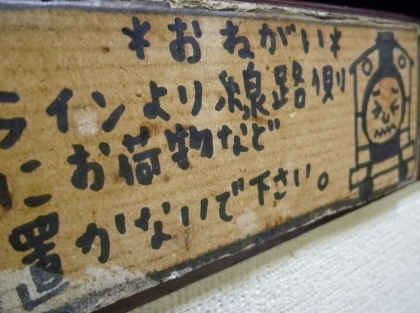 *おねがい*
ラインより線路側
にお荷物など
置かないで下さい。